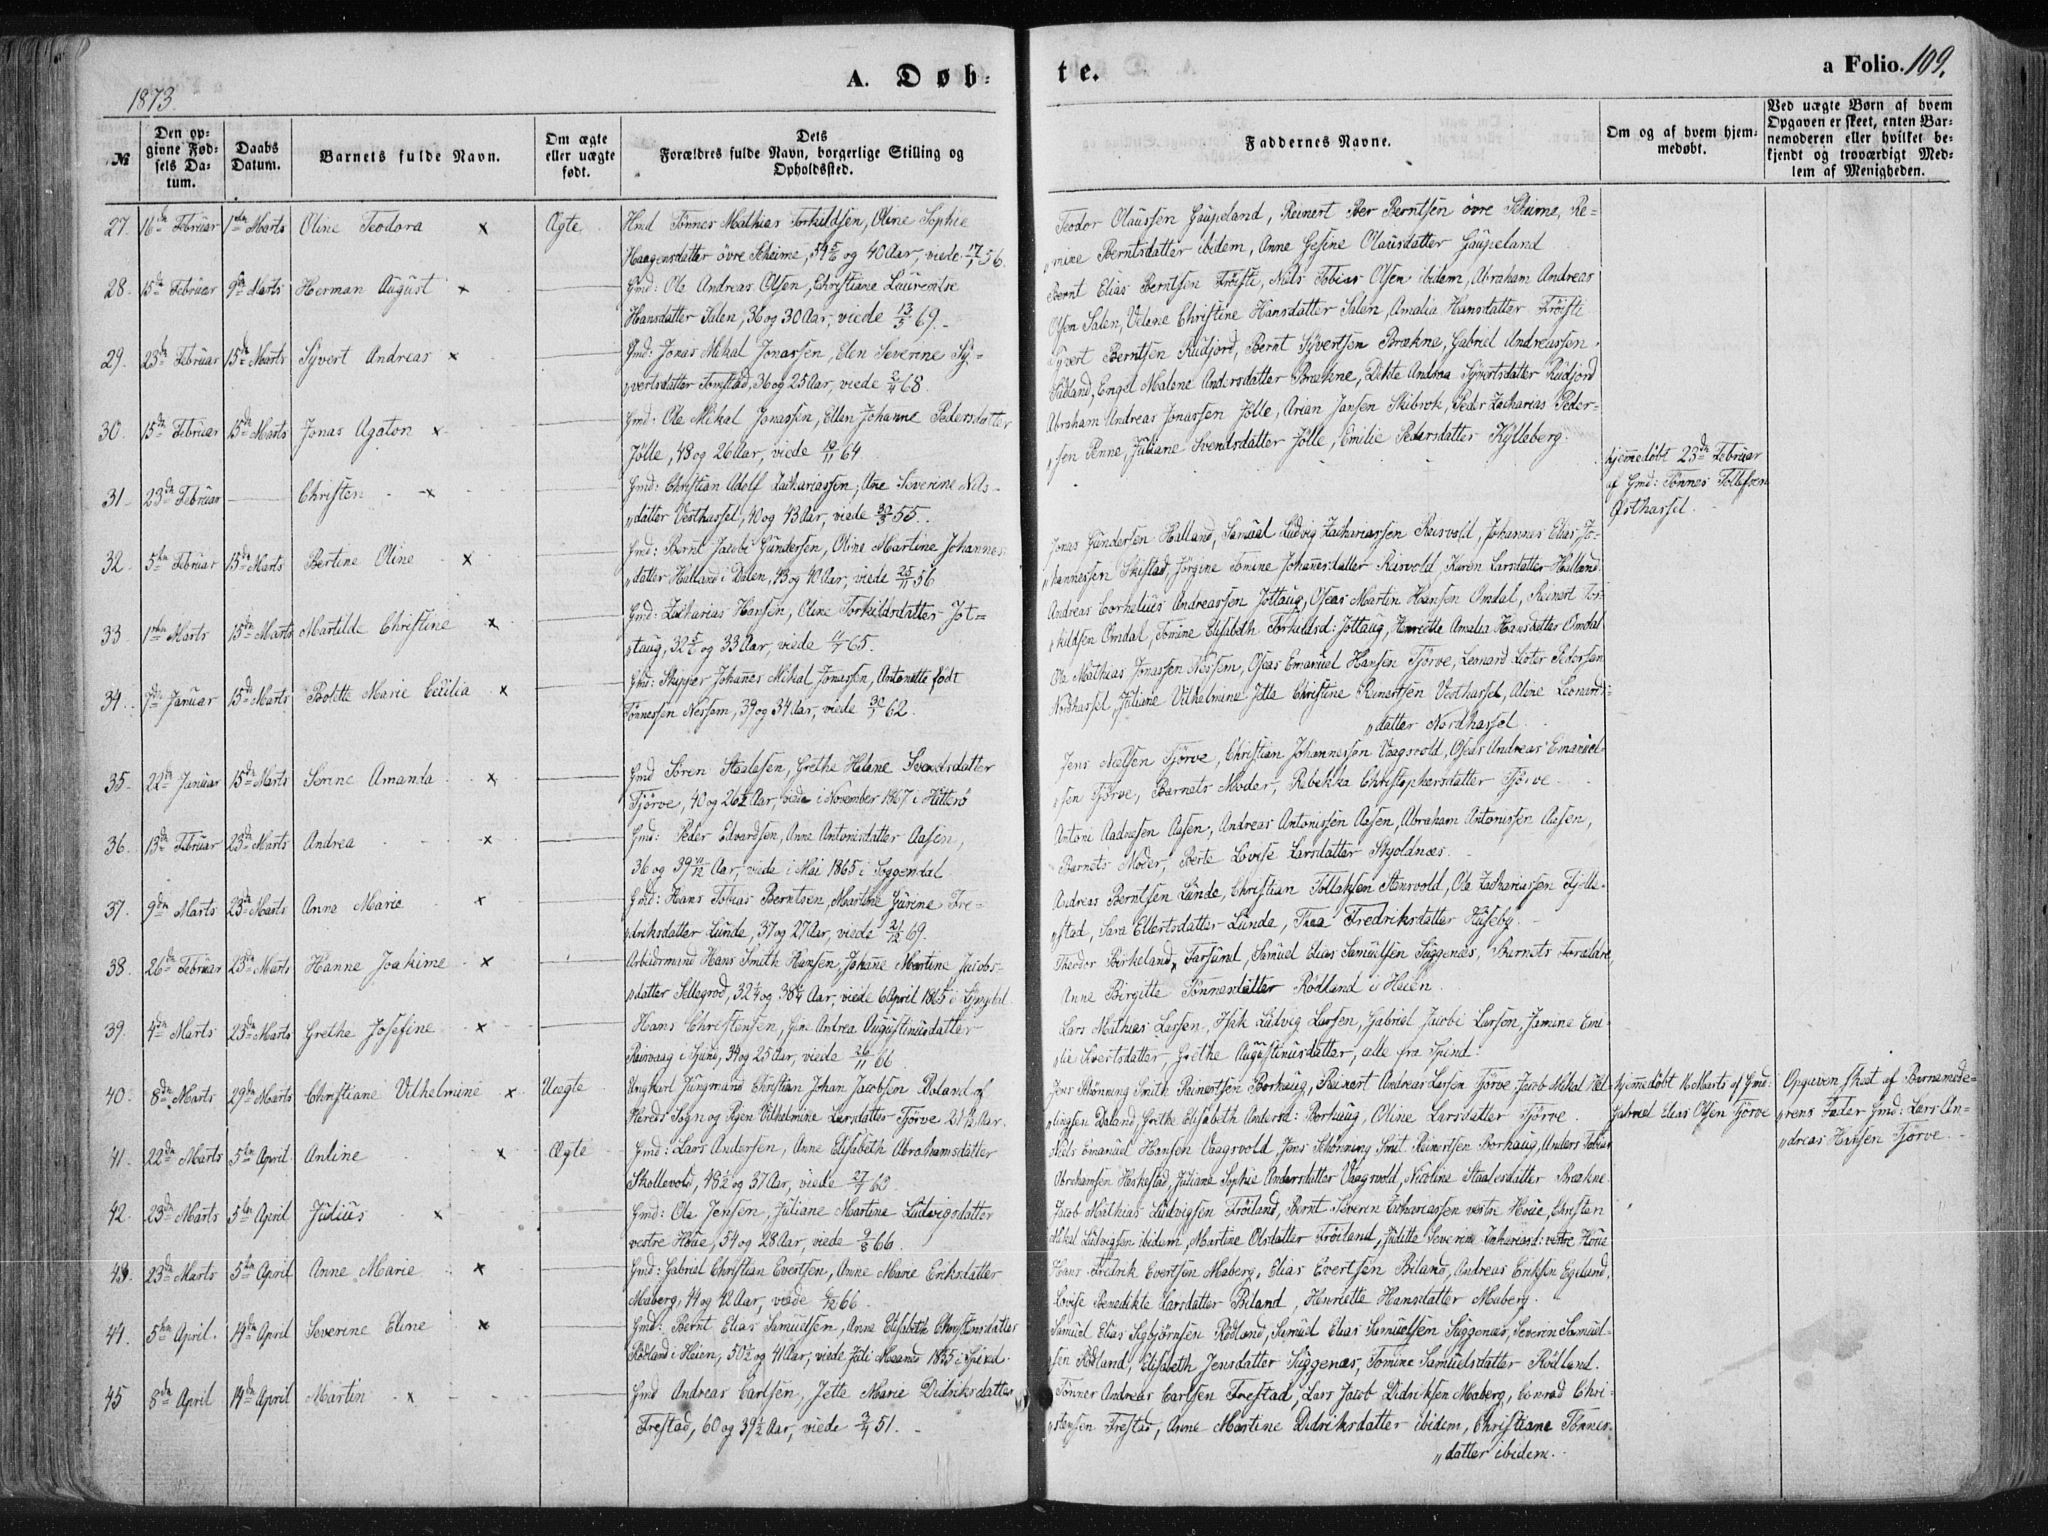 A. Døb-
te.
a Folio. 109.
1873.
№
Den op-
givne Fød-
sels Da-
tum.
Daabs
Datum.
Barnets fulde Navn.
Om ægte
eller uægte
født.
Dets
Forældres fulde Navn, borgerlige Stilling og
Opholdssted.
Faddernes Navne.
Om og af hvem hjem-
medøbt.
Ved uægte Børn af hvem
Opgaven er skeet, enten Bar-
nemoderen eller hvilket be-
kjendt og troværdigt Med-
lem af Menigheden.
27. 16de Februar 1ste Marts Oline Teodora x Ægte
Hmd Tönnes Mathias Torkildsen, Oline Sophie
Haagensdatter övre Skeime, og 40 Aar, viede 56.
Teodor Olaussen Gaupeland, Reinert Ber Berntsen övre Skeime, Re-
„mine Berntsdatter ibidem, Anne Gesine Olausdatter Gaupeland
28. 15de Februar 9de Marts Herman August x
Gmd: Ole Andreas Olsen, Christiane Laurentse
Hansdatter Salen, 36 og 30 Aar, viede 13/5 69.
Bernt Elias Berntsen Fröisti, Nils Tobias Olsen ibidem, Abraham Andreas
Olsen Salen, Vilene Christine Hansdatter Salen, Amalia Hansdatter Fröisti
29. 23de Februar 15de Marts Syvert Andreas x
Gmd: Jonas Mikal Jonassen, Elen Severine Sy-
„vertsdatter Tomstad, 36 og 25 Aar, viede 68.
Syvert Berntsen Rudjord, Bernt Syvertsen Brækne, Gabriel Andreassen
Sædland, Engel Malene Andersdatter Brækne, Dikte Andrea Syvertsdatter Rudjord
30. 15de Februar 15de Marts Jonas Agaton x
Gmd: Ole Mikal Jonassen, Ellen Johanne Pedersdatter
Jölle, 48 og 26 Aar, viede 10/11 64.
Abraham Andreas Jonassen Jölle, Arian Jansen Skibrok, Peder Zacharias Peder-
„sen Penne, Juliane Svendsdatter Jölle, Emilie Pedersdatter Kylleberg.
31 23de Februar Christen x
Gmd: Christian Adolf Zachariassen, Ane Severine Nils-
„datter Vesthassel, 40 og 43 Aar, viede 30/3 55.
hjemmedøbt 23de Februar
af Gmd: Tönnes Tollefsen
Østhassel.
32. 5te Februar 15de Marts Bertine Oline x
Gmd: Bernt Jacobi Gundersen, Oline Martine Johannes-
„datter Halland i Dalen, 43 og 40 Aar, viede 25/11 56
Jonas Gundersen Halland, Samuel Ludvig Zachariassen Reisvold, Johannes Elias Jo-
„hannessen Skistad, Jörgine Tomine Johannesdatter Reisvold, Karen Larsdatter Halland.
33. 1ste Marts 15de Marts Martilde Christine x
Gmd: Zacharias Hansen, Oline Torkildsdatter Jot-
„taug, 32 og 33 Aar, viede 65.
Andreas Cornelius Andreassen Jöttaug, Oseas Martin Hansen Omdal, Reinert Tor-
„kildsen Omdal, Tomine Elisabeth Torkildsd: Jöttaug, Henriette Amalia Hansdatter Omdal
34. 7de Januar 15de Marts Bolette Marie Cecilia x
Gmd: Skipper Johannes Mikal Jonassen, Antonette født
Tönnessen Nessem, 39 og 34 Aar, viede 62.
Ole Mathias Jonassen Nessem, Oseas Emanuel Hansen Tjörve, Leonard Lister Pedersen
Nordhassel, Juliane Vilhelmine Jetta Christine Reinertsen Vesthassel, Aline Leonards-
„datter Nordhassel.
35. 22de Januar 15de Marts Serine Amanda x
Gmd Sören Staalesen, Grethe Helene Svendsdatter
Tjörve, 40 og 26½ Aar, viede i November 1867 i Hitterö
Jens Nelsen Tjörve, Christian Johannessen Vaagsvold, Oseas Andreas Emanuel-
„sen Tjörve, Barnets Moder, Rebekka Christophersdatter Tjörve
36. 13de Februar 23de Marts Andrea x
Gmd: Peder Edvardsen, Anne Antonisdatter Aasen,
36 og 39 11/12 Aar, viede i Mai 1865 i Soggendal
Antoni Aadnesen Aasen, Andreas Antonissen Aasen, Abraham Antonissen Aasen,
Barnets Moder, Berte Lovise Larsdatter Skjoldnæs.
37. 9de Marts 23de Marts Anne Marie x
Gmd: Hans Tobias Berntsen, Martine Gurine Fre-
„driksdatter Lunde, 37 og 27 Aar, viede 21/12 69.
Andreas Berntsen Lunde, Christian Tollaksen Stensvold, Ole Zachariassen Fjelle-
„stad, Sara Ellertsdatter Lunde, Thea Fredriksdatter Huseby.
38. 26de Februar 23de Marts Hanne Joakime x
Arbeidsmand Hans Smith Hansen, Johanne Martine Jacobs-
„datter Sellegrod, 32¼ og 38¼ Aar, viede 6 April 1865 i Lyngdal.
Theodor Birkeland, Farsund, Samuel Elias Samuelsen Siggenæs, Barnets Forældre,
Anne Birgitte Tönnesdatter Rödland i Heien.
39. 4de Marts 23de Marts Grethe Josefine x
Hans Christensen, Gine Andrea Augustinusdatter
Reisvaag i Spind, 34 og 25 Aar, viede 26/11 66
Lars Mathias Larsen, Isak Ludvig Larsen, Gabriel Jacobi Larsen, Jamine Emi-
„lie Sivertsdatter, Grethe Augustinusdatter, alle fra Spind.
40. 8de Marts 29de Marts Christiane Vilhelmine x Uægte
Ungkarl Jungmand Christian Johan Jacobsen Daland af
Herreds Sogn og Pigen Vilhelmine Larsdatter Tjörve 21½ Aar.
Jens Skönning Smith Reinertsen Borhaug, Reinert Andreas Larsen Tjörve, Jacob Mikal Vel-
„lingsen Daland, Grethe Elisabeth Andersd: Borhaug, Oline Larsdatter Tjörve
hjemmedøbt 16 Marts af Gmd:
Gabriel Elias Olsen Tjörve
Opgaven skeet af Barnemode-
„rens Fader Gmd: Lars An-
„dreas Hansen Tjörve.
41. 22de Marts 5te April Anline x Ægte
Gmd: Lars Andersen, Anne Elisabeth Abrahamsdatter
Skollevold, 48½ og 37 Aar, viede 27/7 63.
Nils Emanuel Hansen Vaagsvold, Jens Schönning Smit Reinertsen Borhaug, Anders Tobias
Abrahamsen Heskestad, Juliane Sophie Andersdatter Vaagsvold, Nicoline Staalesdatter Brækne.
42. 23de Marts 5te April Julius x
Gmd: Ole Jensen, Juliane Martine Ludvigsdatter
vestre Houe, 54 og 28 Aar, viede 9/8 66.
Jacob Mathias Ludvigsen Fröiland, Bernt Severin Zachariassen vestre Houe, Christen
Mikal Ludvigsen ibidem, Martine Olsdatter Fröiland, Juditte Severine Zachariasd: vestre Houe
43. 23de Marts 5te April Anne Marie x
Gmd: Gabriel Christian Evertsen, Anne Marie Eriksdatter
Maberg, 44 og 42 Aar, viede 66.
Hans Fredrik Evertsen Maberg, Elias Evertsen Biland, Andreas Eriksen Egeland,
Lovise Benedikte Larsdatter Biland, Henriette Hansdatter Maberg.
44. 5te April. 14de April Severine Eline x
Gmd: Bernt Elias Samuelsen, Anne Elisabeth Christensdatter
Rödland i Heien, 50½ og 41 Aar, viede Juli Maaned 1855 i Spind.
Samuel Elias Sigbjörnsen Rödland, Samuel Elias Samuelsen Siggenæs, Severin Samuel-
„sen Rödland, Elisabeth Jensdatter Siggenæs, Tomine Samuelsdatter Rödland.
45 8de April 14de April Martin x
Gmd Andreas Carlsen, Jette Marie Didriksdatter
Frestad, 60 og 39½ Aar, viede 51.
Tönner Andreas Carlsen Frestad, Lars Jacob Didriksen Maberg, Conrad Chri-
„stensen Frestad, Anne Martine Didriksdatter ibidem, Christiane Tönnes-
„datter ibidem.